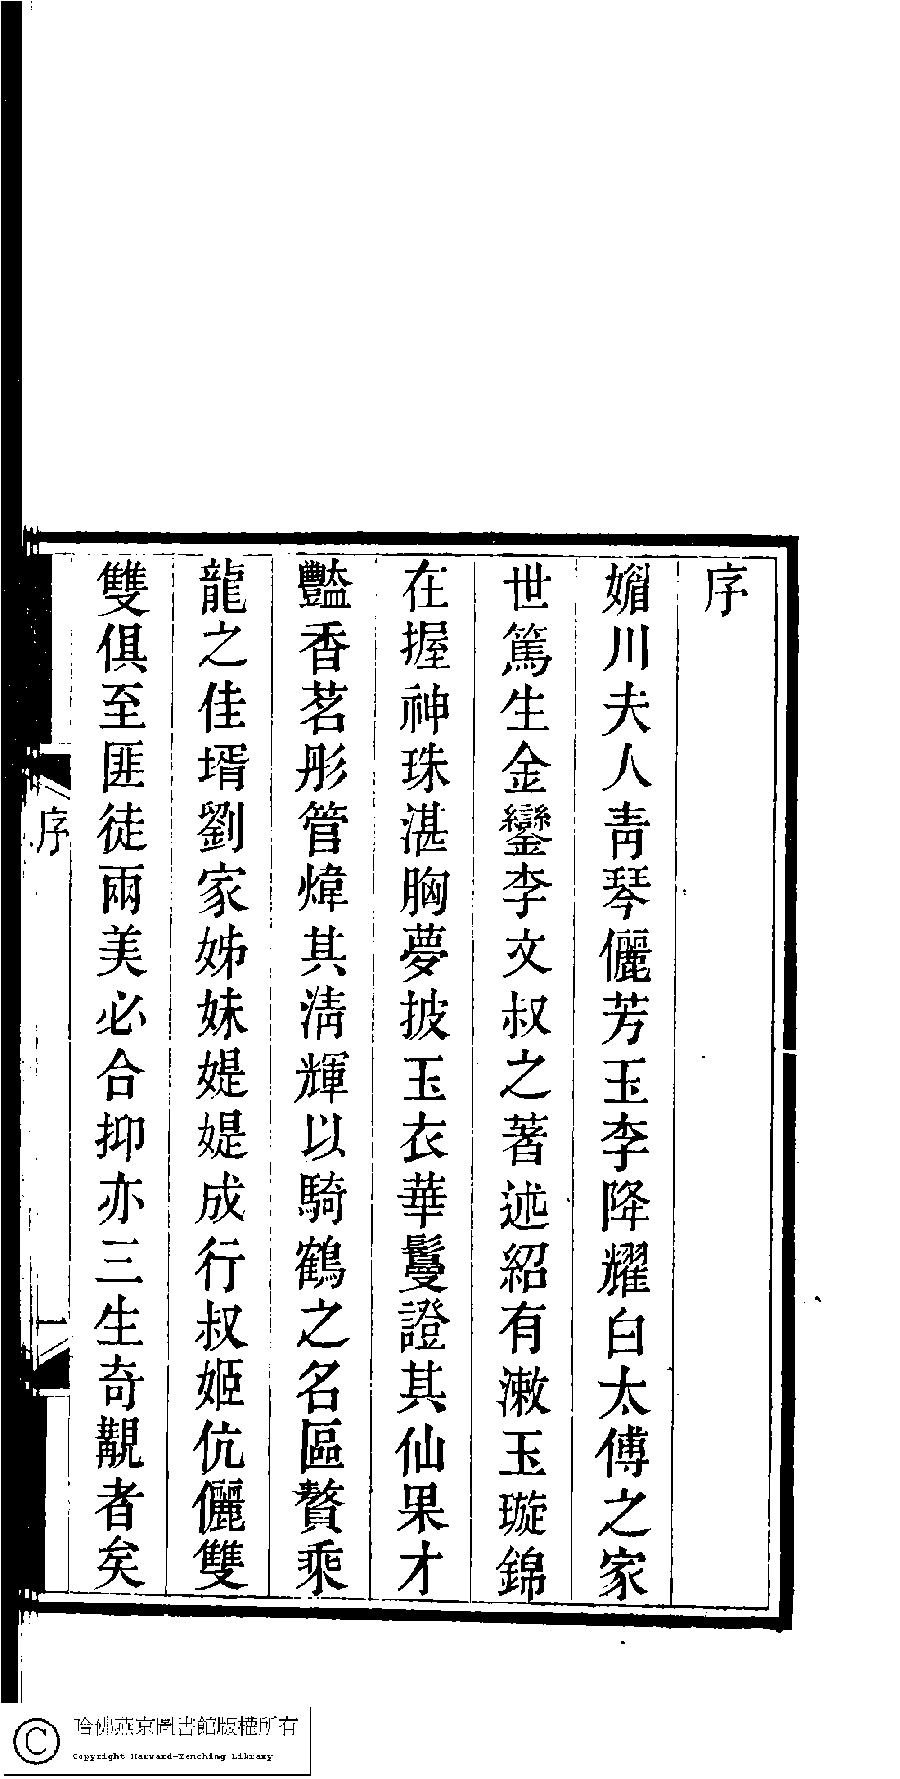 序
媚川夫人青琴儷芳玉李降耀白太傅之家
世篤生金鑾李文叔之著述紹有漱玉璇錦
在握神珠湛胸夢披玉衣華鬘證其仙果才
豔香茗彤管煒其淸輝以騎鶴之名區贅乘
龍之佳壻劉家姊妹媞媞成行叔姬伉儷雙
雙俱至匪徒兩美必合抑亦三生奇覯者矣
序
一
哈佛燕京圖書館版權所有
Copyright Harvard-Yenching Library